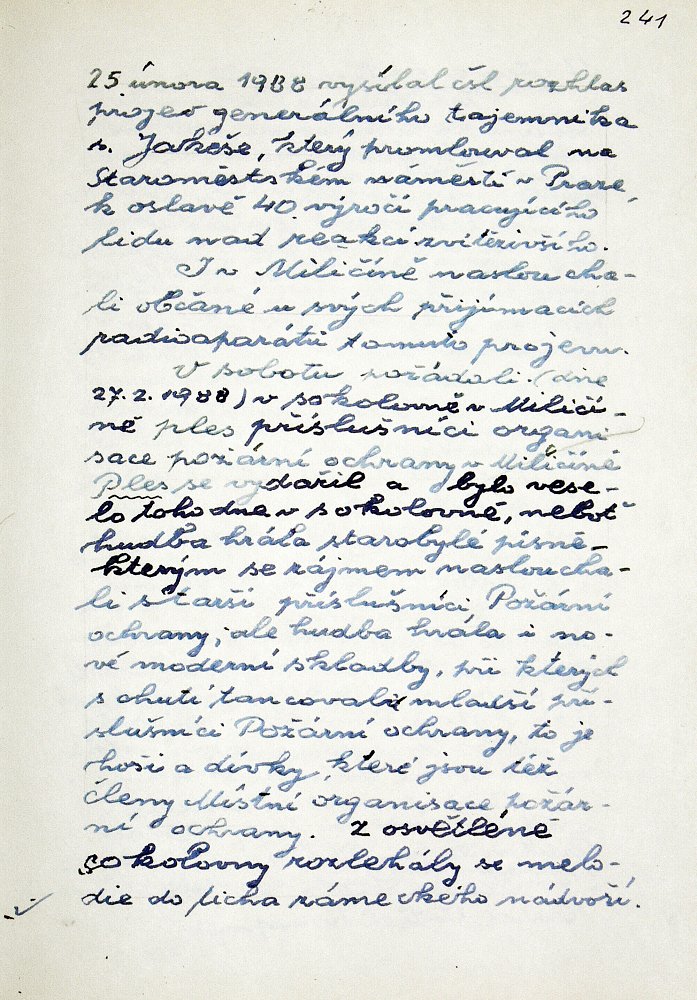 241
25 února 1988 vysílal čsl rozhlas
projev generálního tajemníka
s. Jakeše, který promlouval na
Staroměstském náměstí v Praze,
k oslavě 40 výročí pracujícího
lidu nad reakcí zvítězivšího.
I v Miličíně nasloucha-
li občané u svých přijímacích
radioaparátů tomuto projevu.
V sobotu pořádali (dne
27. 2. 1988) v sokolovně v Miličí-
ně ples příslušníci organi
sace požární ochrany v Miličíně
Ples se vydařil a bylo vese-
lo toho dne v sokolovně, neboť
hudba hrála starobylé písně-
kterým se zájmem nasloucha-
li starší příslušníci Požární
ochrany, ale hudba hrála i no-
vé moderní skladby, při kterých
s chutí tancovali mladší pří-
slušníci Požární ochrany, to je
hoši a dívky, které jsou též
členy Místní organisace požár-
ní ochrany. Z osvětléné
sokolovny rozlehály se melo-
die do ticha zámeckého nádvoří.